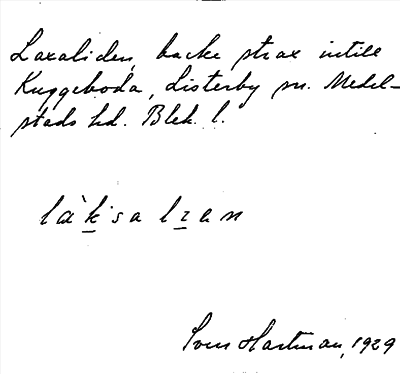 Laxaliden, backe strax intill
Kuggeboda, Listerby sn. Medel-
stads hd. Blek. l.
là`ksalıan
Sven Hartman, 1929